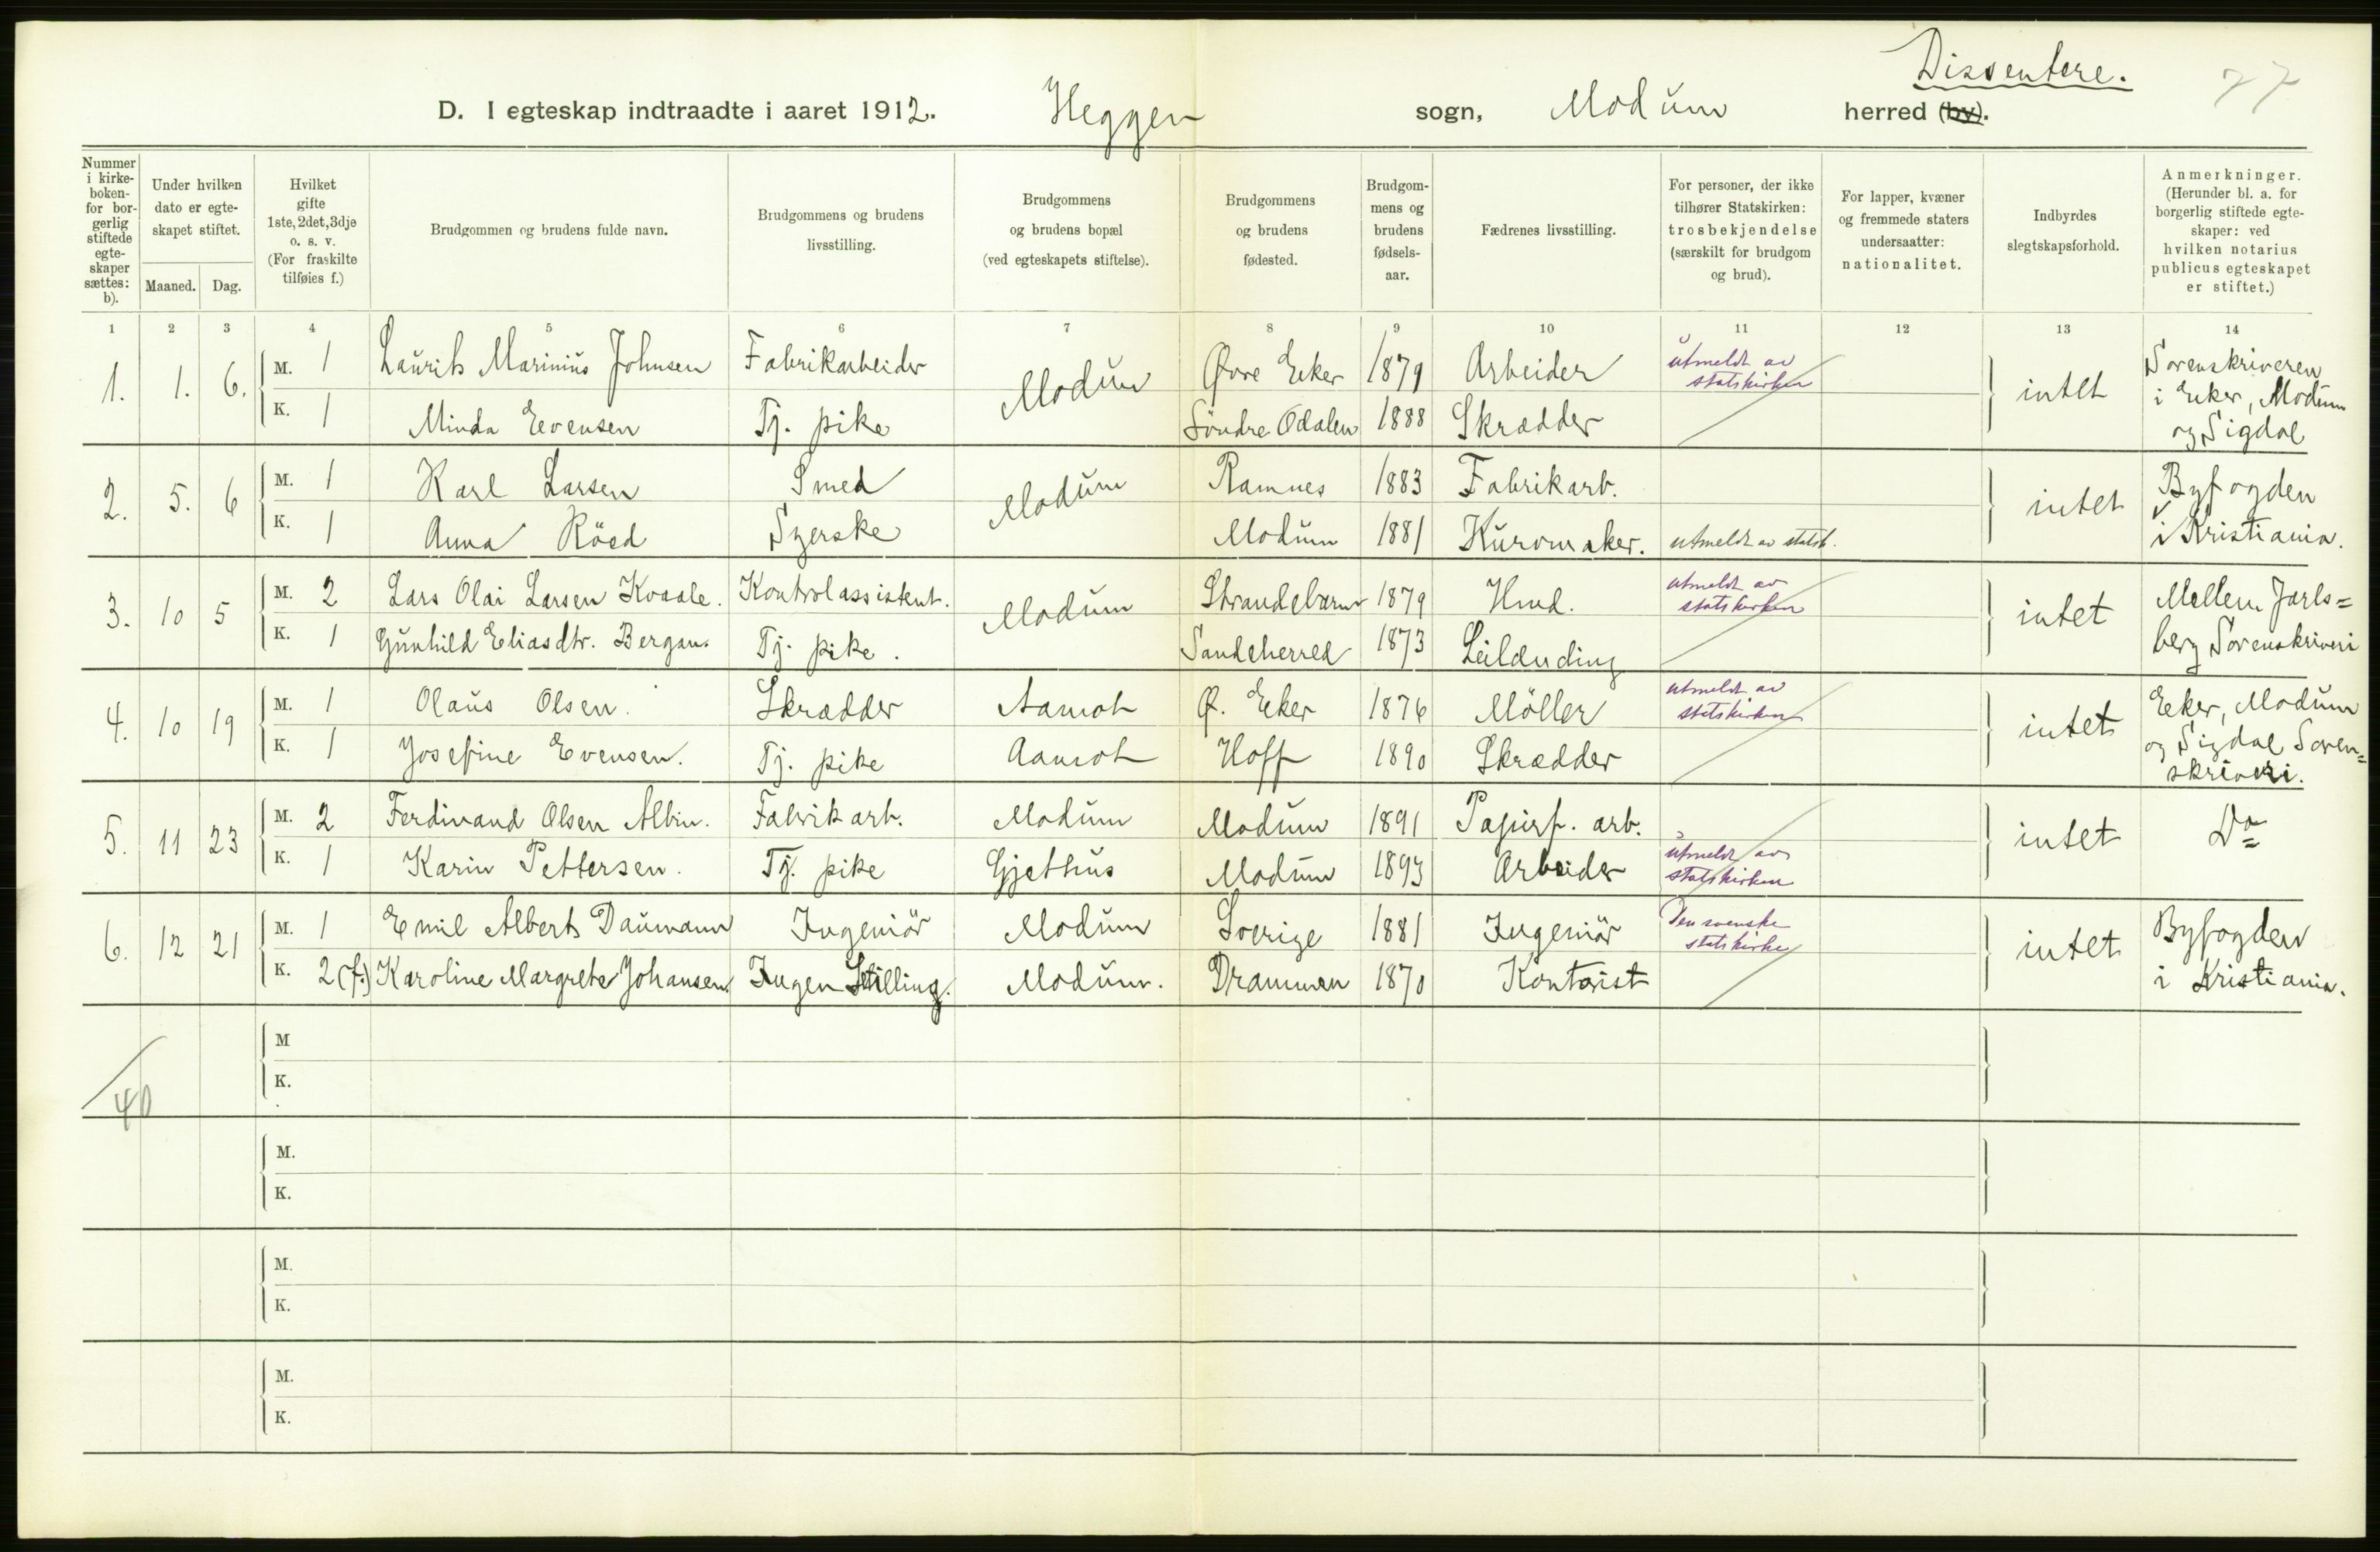 Dissentere.
77
D. I egteskap indtraadte i aaret 1912. Heggen sogn, Modum herred (by).
Nummer i kirkeboken- for borgerlig stiftede egteskaper sættes: b).
Under hvilken dato er egteskapet stiftet.
Maaned. Dag.
Hvilket gifte 1ste, 2det, 3dje o. s. v. (For fraskilte tilføies f.)
Brudgommen og brudens fulde navn.
Brudgommens og brudens livsstilling.
Brudgommens og brudens bopæl (ved egteskapets stiftelse).
Brudgommens og brudens fødested.
Brudgommens og brudens fødselsaar.
Fædrenes livsstilling.
For personer, der ikke tilhører Statskirken: trosbekjendelse (særskilt for brudgom og brud).
For lapper, kvæner og fremmede staters undersaatter: nationalitet.
Indbyrdes slegtskapsforhold.
Anmerkninger. (Herunder bl. a. for borgerlig stiftede egteskaper: ved hvilken notarius publicus egteskapet er stiftet.)
1 2 3 4 5 6 7 8 9 10 11 12 13 14
1. 1. 6. M. 1 Laurits Marinius Johnsen Fabrikarbeider Modum Øvre Eeker 1879 Arbeider utmeldt av statskirken intet Sorenskriveren i Eeker, Modum og Sigdal
K. 1 Minda Evensen Tj. pike Söndre Odalen 1888 Skrædder
2. 5. 6 M. 1 Karl Larsen Smed Modum Ramnes 1883 Fabrikarb. intet Byfogden i Kristiania.
K. 1 Anna Röed Syerske Modum 1881 Kurvmaker. utmeldt av statsk.
3. 10 5 M. 2 Lars Olai Larsen Kvaale. Kontrolassistent. Modum Strandebarm 1879 Hmd. utmeldt av statskirken intet Mellem Jarlsberg Sorenskriveri
K. 1 Gunhild Eliasdtr. Bergan. Tj. pike. Sandeherred 1873 Leilænding
4. 10 19 M. 1 Olaus Olsen. Skrædder Aamot Ø. Eeker 1876 Möller utmeldt av statskirken intet Eeker, Modum og Sigdal Sorenskriveri.
K. 1 Josefine Evensen. Tj. pike Aamot Hoff 1890 Skrædder
5. 11 23 M. 2 Ferdinand Olsen Albin. Fabrikarb. Modum Modum 1891 Papirf. arb. intet Do
K. 1 Karin Pettersen. Tj. pike Gjethus Modum 1893 Arbeider utmeldt av statskirken
6. 12 21 M. 1 Emil Albert Daumann Ingeniör Modum Sverige 1881 Ingeniör Den svenske statskirke intet Byfogden i Kristiania.
K. 2 (f.) Karoline Margrete Johansen. Ingen Stilling. Modum. Drammen 1870 Kontorist
M
K.
40
M.
K.
M.
K.
M.
K.